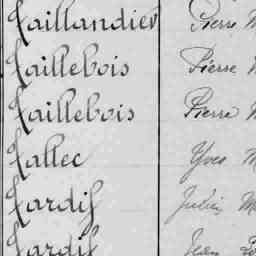 Taillandier Pierre M
Taillebois Pierre M
Taillebois Pierre M
Tallec Yves M
Tardif Julien M
Tardif Jean